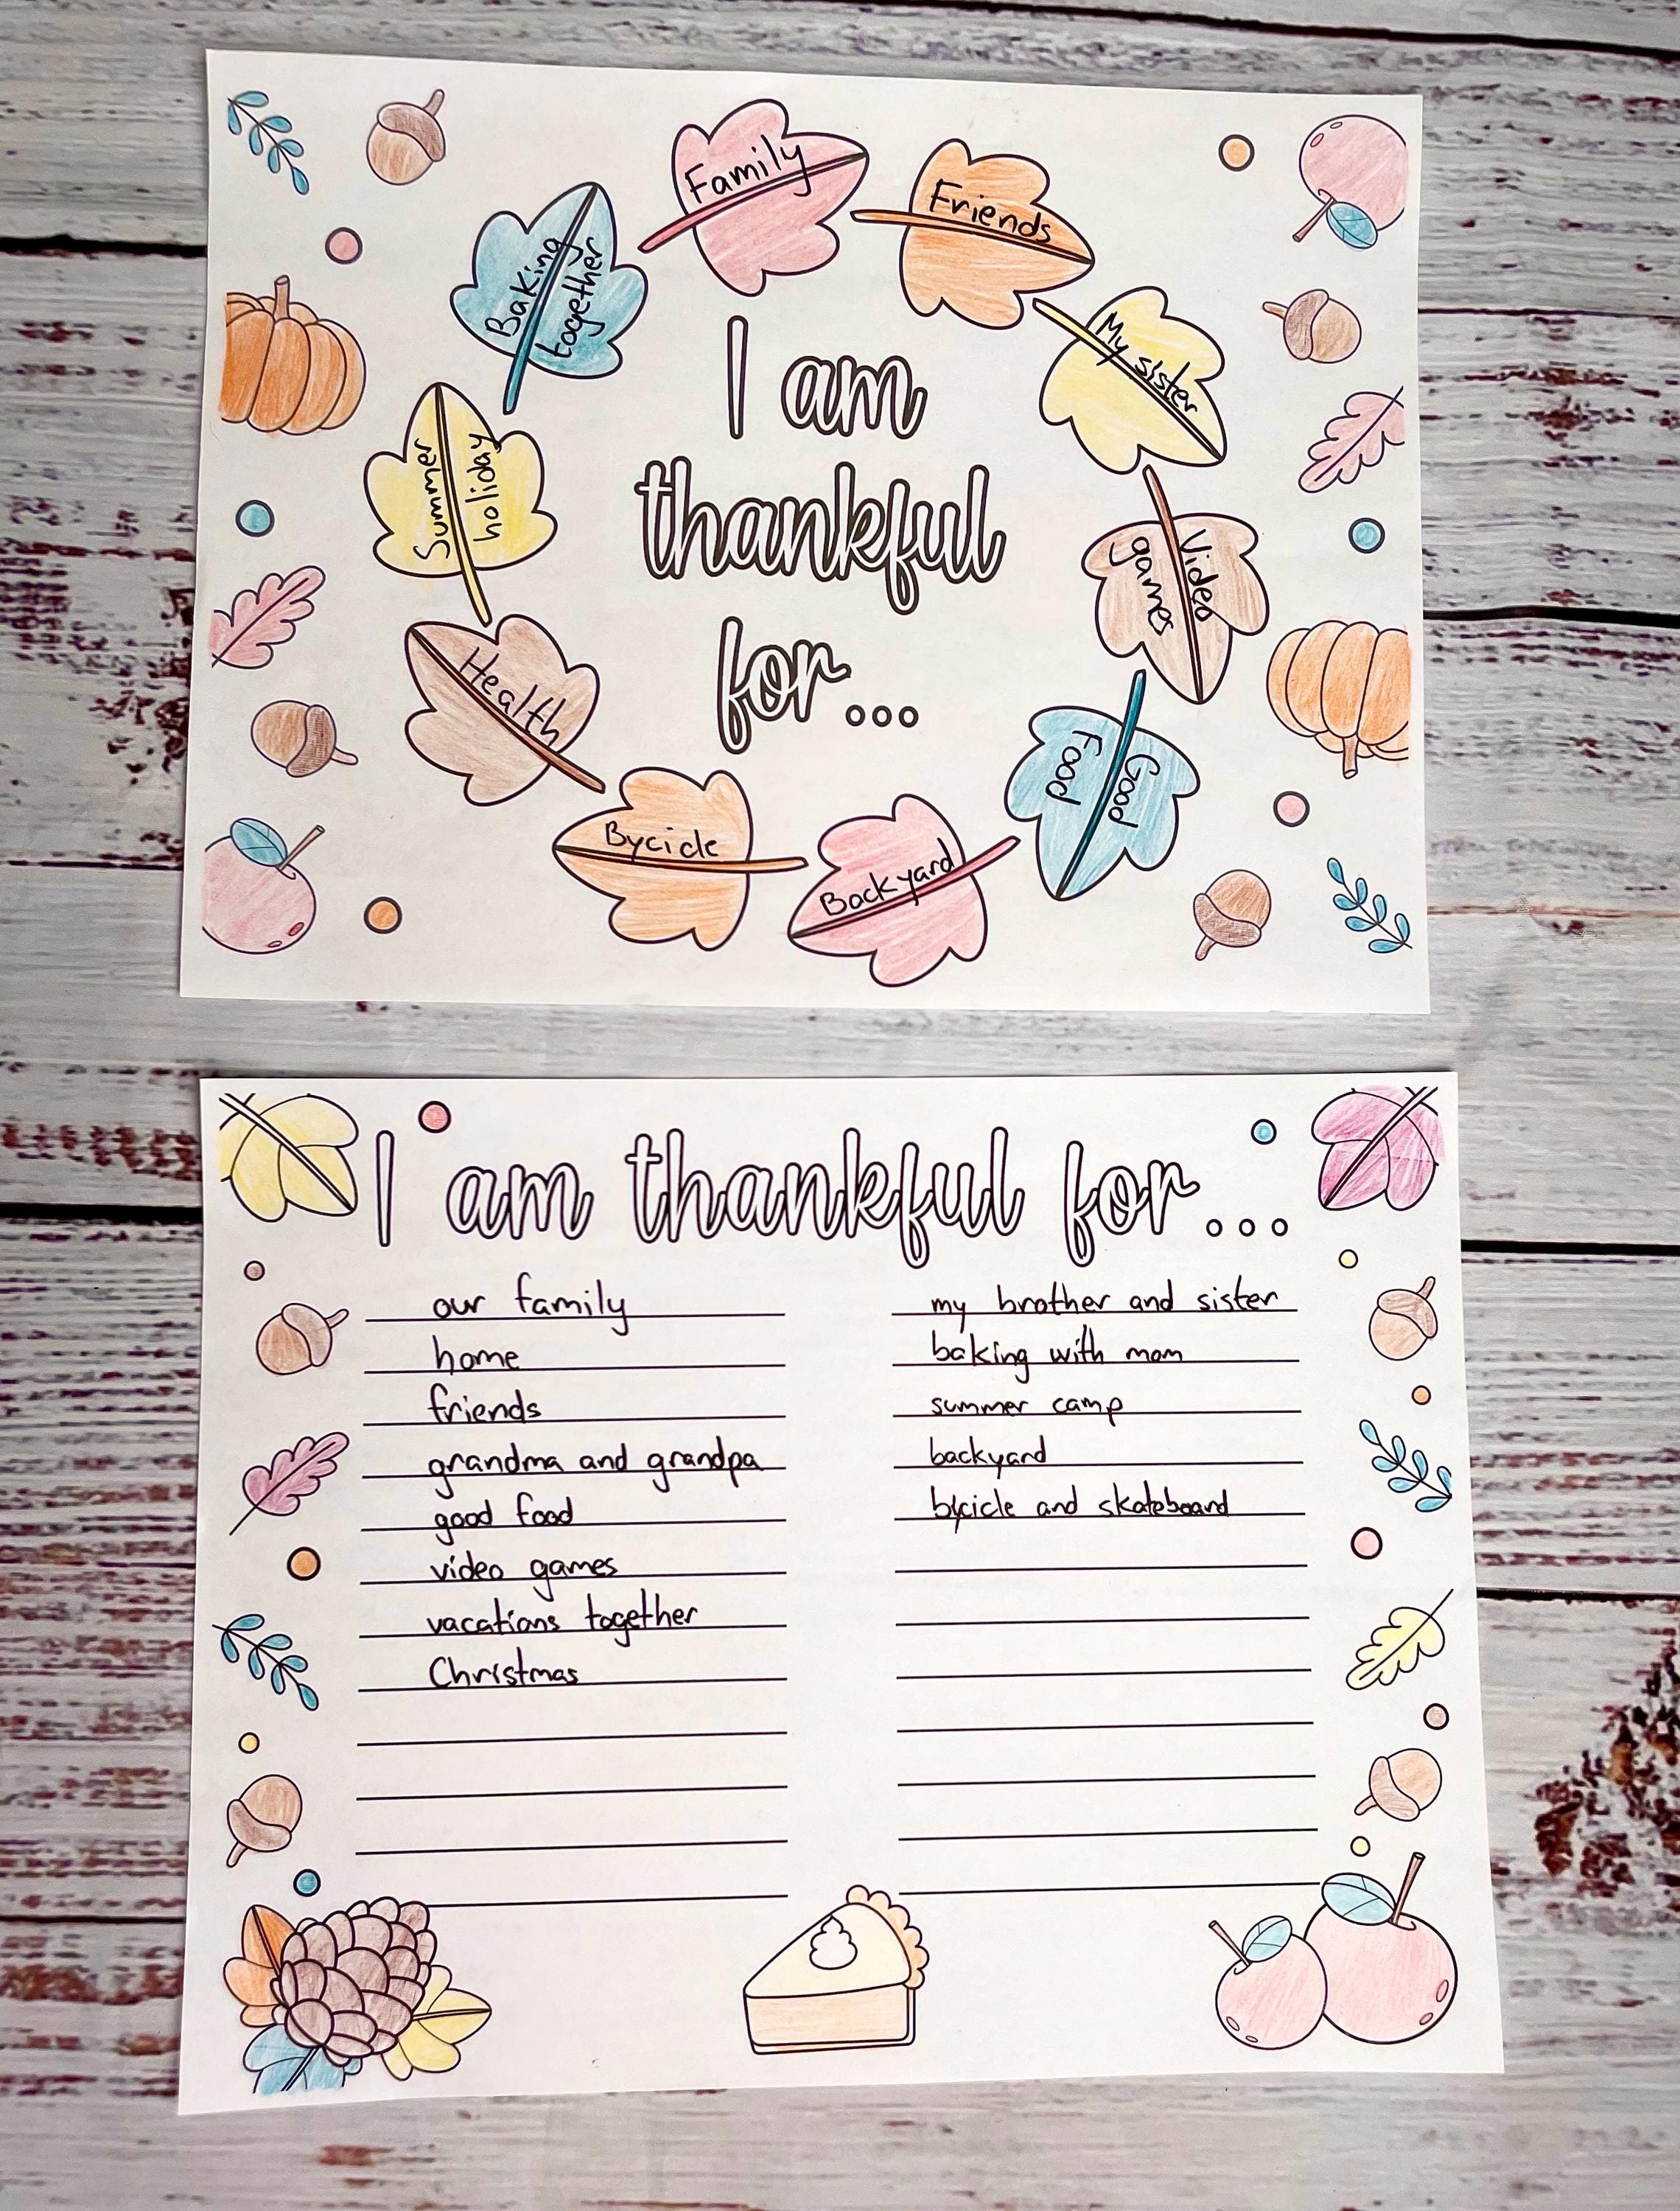 I am
thankful
for...
Family
Friends
My sister
Video
games
Good
Food
Backyard
Bycicle
Health
Summer
holiday
Baking
together
I am thankful for...
our family
home
friends
grandma and grandpa
good food
video games
vacations together
Christmas
my brother and sister
baking with mom
summer camp
backyard
bycicle and skateboard